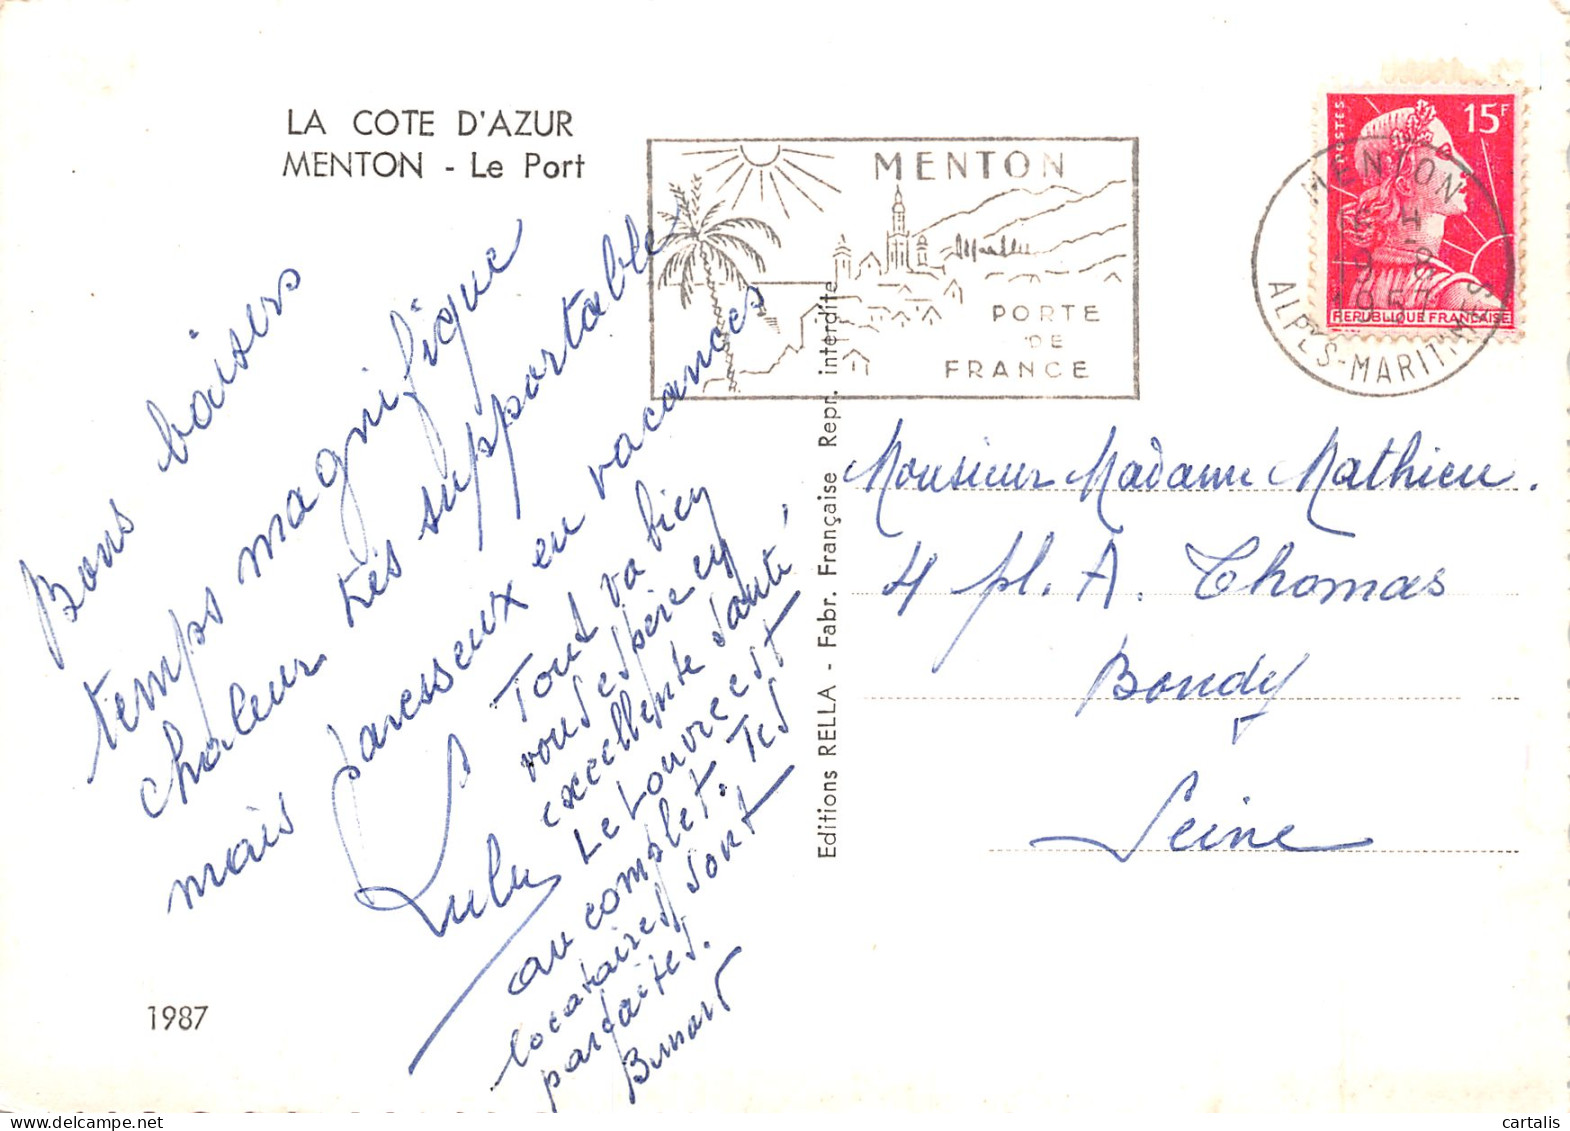 LA COTE D'AZUR
MENTON - Le Port
Bons baisers
temps magnifique
chaleur très supportable
mais paresseux en vacances
Lulu
Tout va bien
vous espère en
excellente santé,
Le Louvre est
au complet. Tes
locataires sont
parfaites.
Bernard
1987
Editions RELLA - Fabr. Française Repr. interdite
MENTON
PORTE
DE
FRANCE
POSTES
15F
REPUBLIQUE FRANÇAISE
MENTON
4-8
1957
ALPES-MARITIMES
Monsieur Madame Mathieu.
4 pl. A. Thomas
Bondy
Seine
cartalis